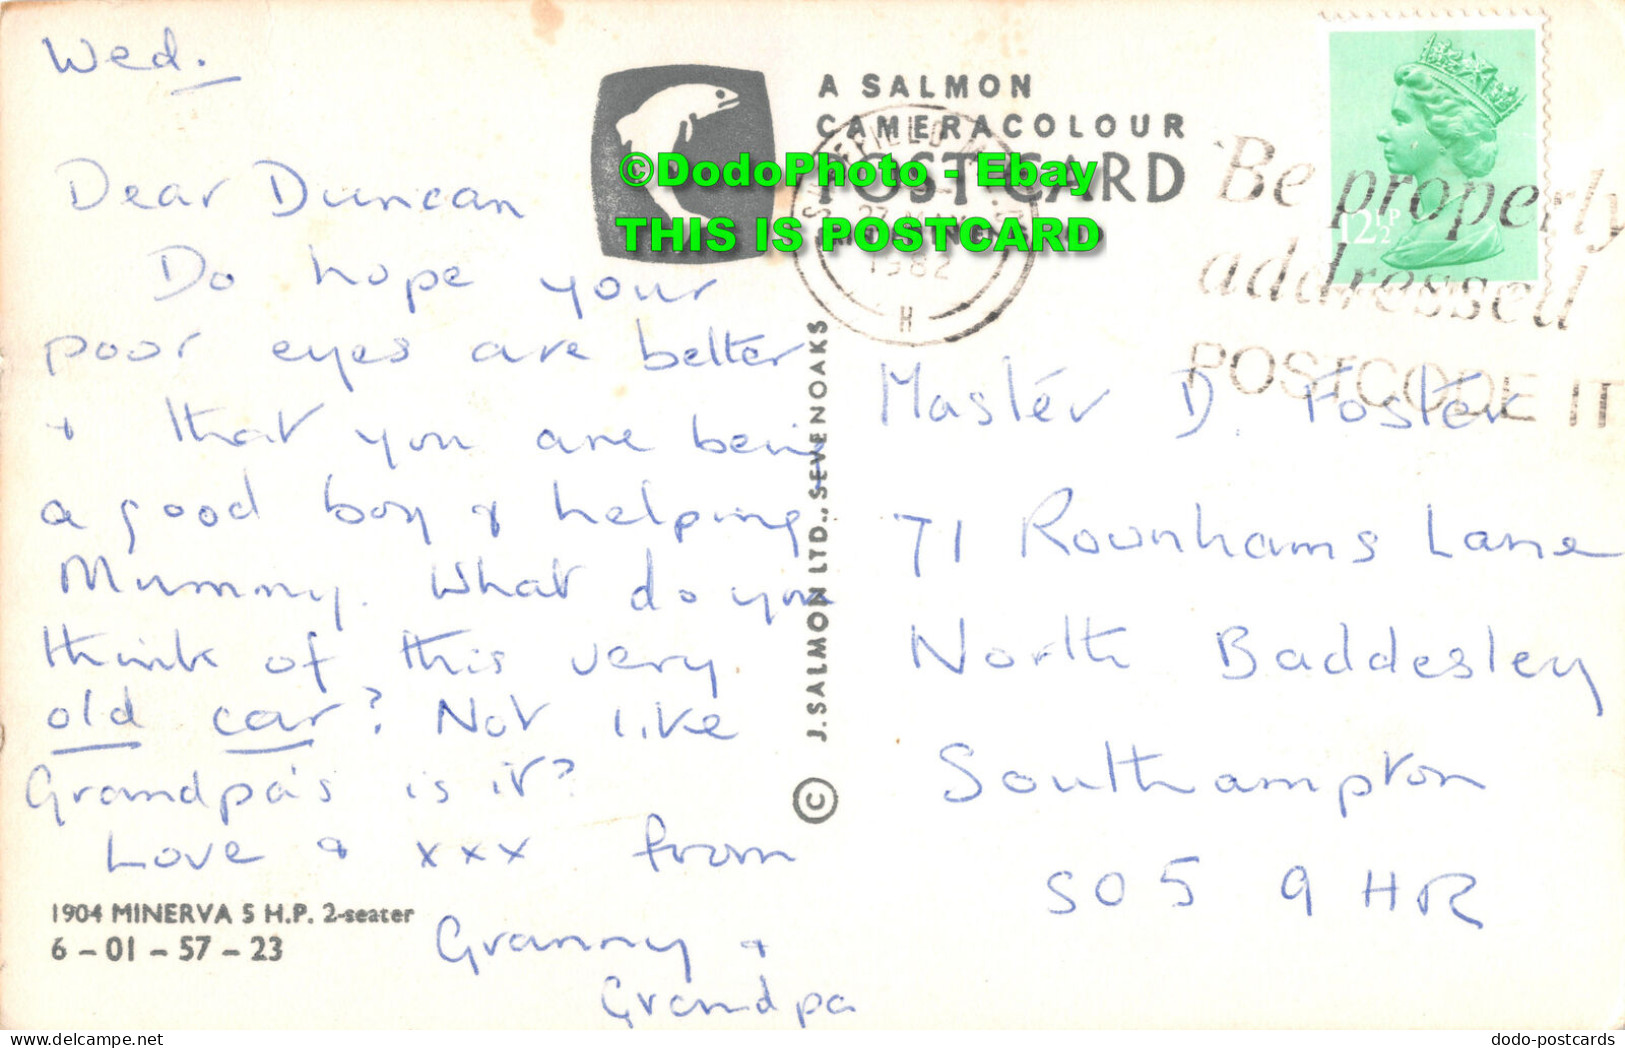 Wed.
Dear Duncan
Do hope your
poor eyes are better
+ that you are being
a good boy & helping
Mummy. What do you
think of this very
old car? Not like
Grandpa's is it?
Love & xxx from
Granny &
Grandpa
1904 MINERVA 5 H.P. 2-seater
6 - 01 - 57 - 23
A SALMON
CAMERACOLOUR
POSTCARD
©DodoPhoto - Ebay
THIS IS POSTCARD
1982
H
© J. SALMON LTD., SEVENOAKS
12½P
Be properly
addressed
POSTCODE IT
Master D Foster
71 Rownhams Lane
North Baddesley
Southampton
SO5 9HR
dodo-postcards